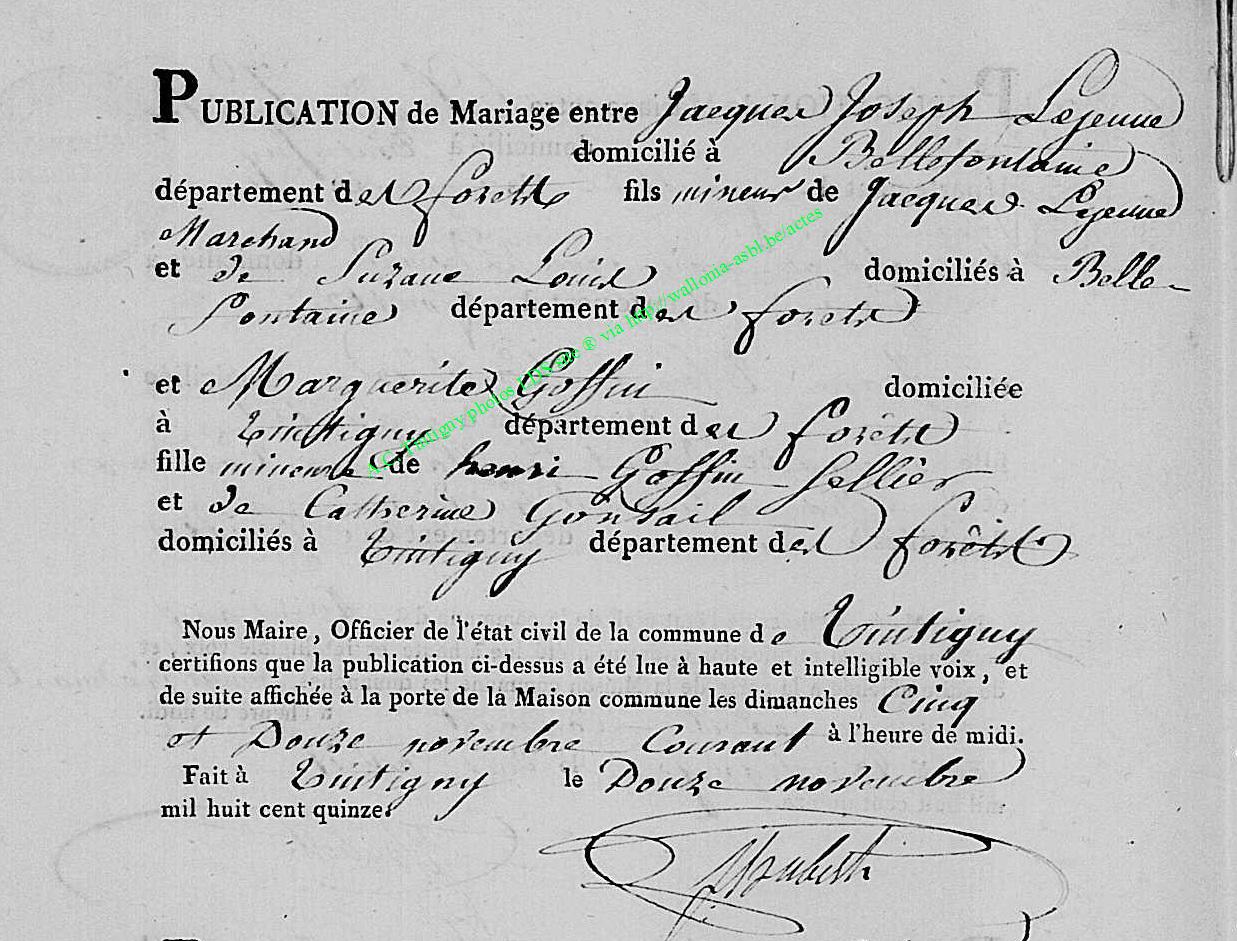 PUBLICATION de Mariage entre Jacques Joseph Lejeune
domicilié à Bellefontaine
département des forets fils mineur de Jacques Lejeune
Marchand
et de Suzane Louis domiciliés à Belle-
fontaine département des forets
et Marguerite Goffin domiciliée
à tintigny département des forêts
fille mineure de henri Goffin Sellier
et de Catherine Gonsail
domiciliés à tintigny département des forêts
Nous Maire, Officier de l'état civil de la commune de tintigny
certifions que la publication ci-dessus a été lue à haute et intelligible voix, et
de suite affichée à la porte de la Maison commune les dimanches Cinq
et Douze novembre Courant à l'heure de midi.
Fait à tintigny le Douze novembre
mil huit cent quinze
A.C. Tintigny photos LDS site ® via http://wallonia-asbl.be/actes